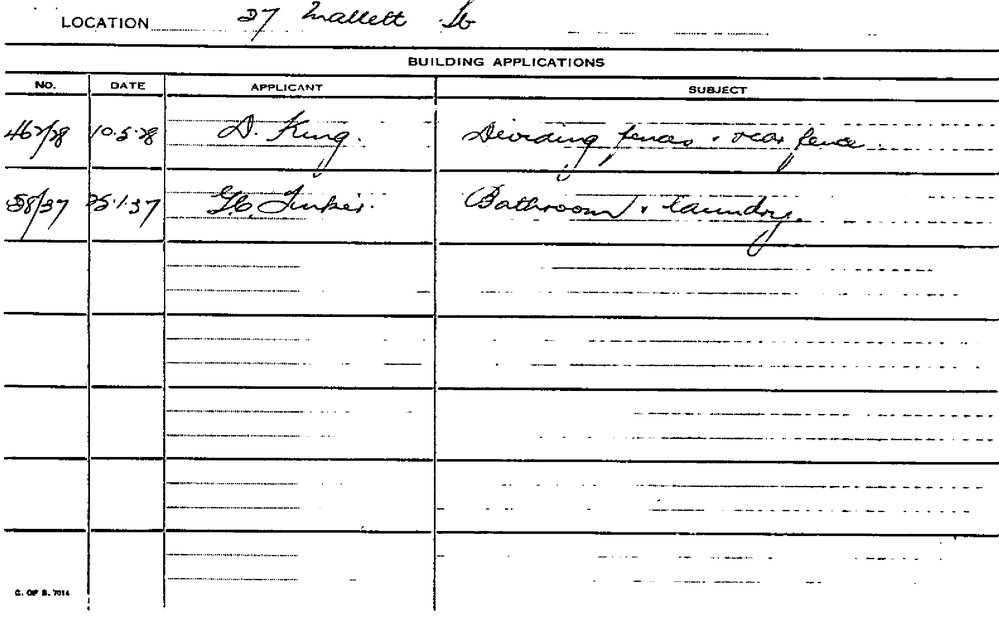 LOCATION 27 Mallett St
BUILDING APPLICATIONS
NO. DATE APPLICANT SUBJECT
462/28 10.5.28 D. King. Dividing fences & rear fence.
58/37 25.1.37 Bathroom & laundry.
C. OF S. 7016